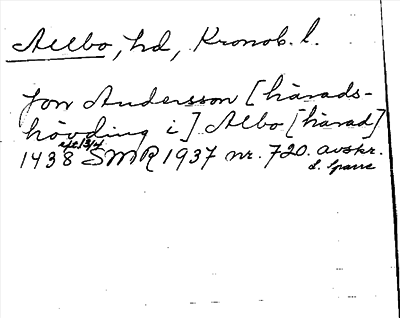 Allbo, hd, Kronob. l.
Jon Andersson [härads-
hövding i] Albo [härad]
1438 SMR 1937 nr. 720. avskr.
S. Sparre